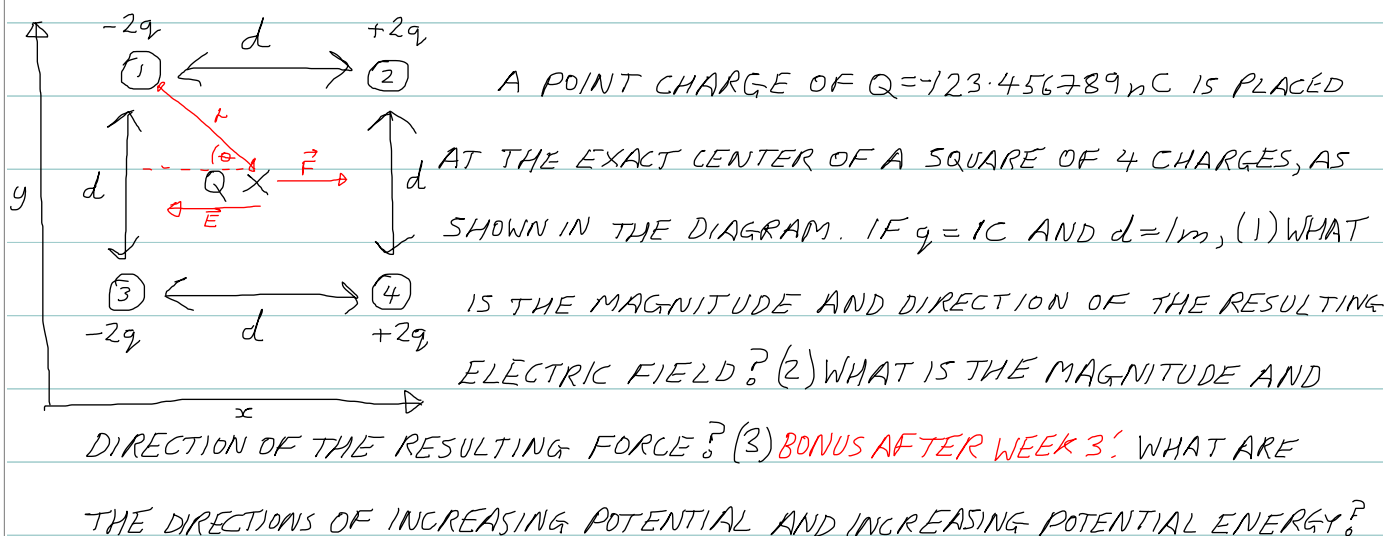 -2q d +2q
1 2
A POINT CHARGE OF Q=-123.456789nC IS PLACED
r
θ F
d Q X d
AT THE EXACT CENTER OF A SQUARE OF 4 CHARGES, AS
y
E
SHOWN IN THE DIAGRAM. IF q=1C AND d=1m, (1) WHAT
3 4
IS THE MAGNITUDE AND DIRECTION OF THE RESULTING
-2q d +2q
ELECTRIC FIELD? (2) WHAT IS THE MAGNITUDE AND
x
DIRECTION OF THE RESULTING FORCE? (3) BONUS AFTER WEEK 3: WHAT ARE
THE DIRECTIONS OF INCREASING POTENTIAL AND INCREASING POTENTIAL ENERGY?